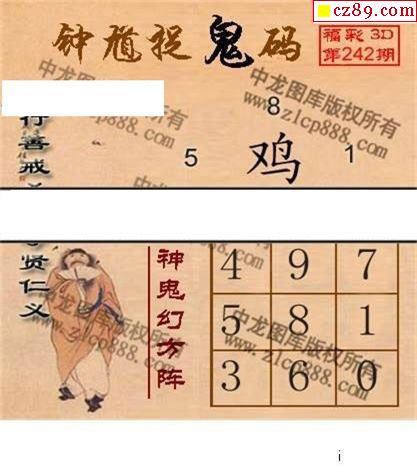 cz89.com
钟馗捉鬼码
福彩 3D
第242期
中龙图库版权所有
www.zlcp888.com
8
5 鸡 1
行善戒
贤仁义
神鬼幻方阵
4 9 7
5 8 1
3 6 0
中龙图库版权所有
www.zlcp888.com
i